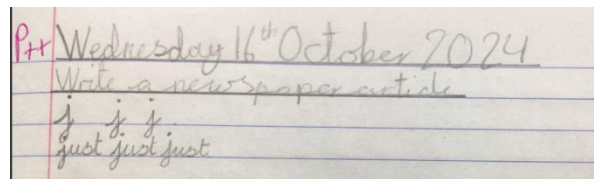 P++ Wednesday 16th October 2024
Write a newspaper article
j j j
just just just